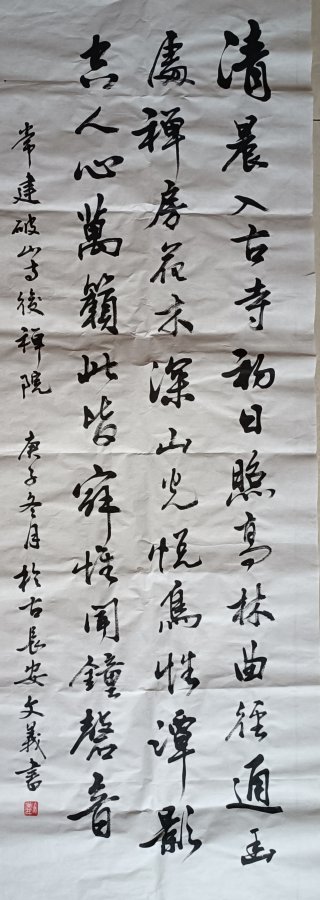 清晨入古寺初日照高林曲径通幽
處禅房花木深山光悦鳥性潭影
空人心萬籟此皆寂惟聞鐘磬音
常建破山寺後禅院 庚子冬月於古長安文義書